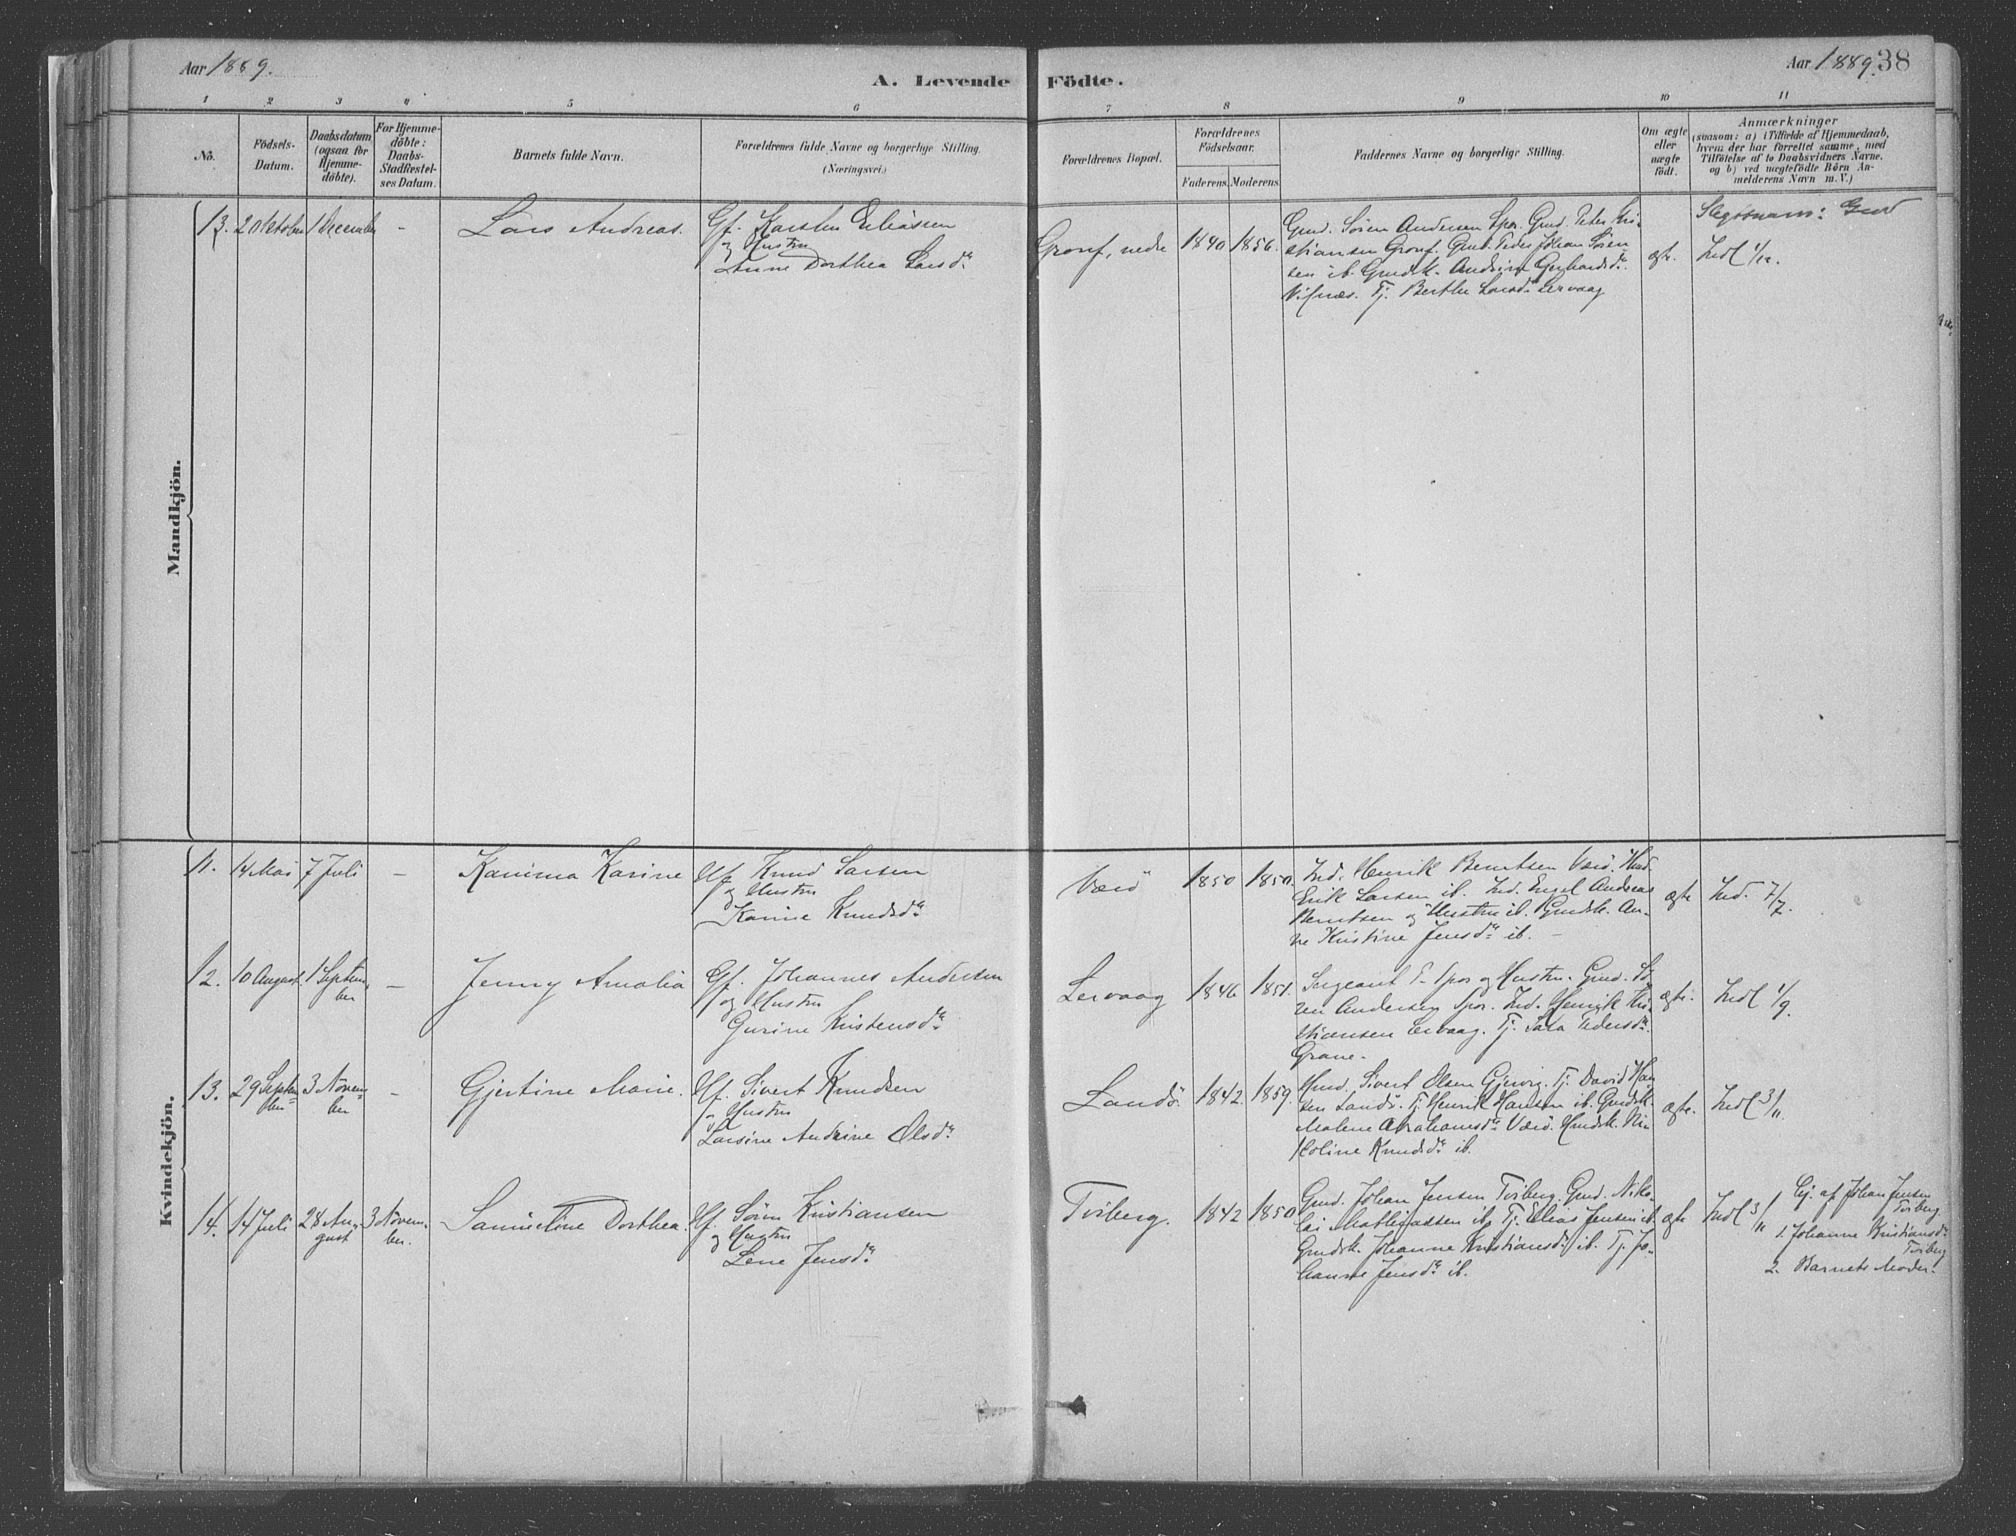 Aar 1889.
A. Levende Födte.
Aar 1889. 38
1 2 3 4 5 6 7 8 9 10 11
No.
Födsels-Datum.
Daabsdatum (ogsaa for Hjemme-döbte).
For Hjemme-döbte: Daabs-Stadfæstel-ses Datum.
Barnets fulde Navn.
Forældrenes fulde Navne og borgerlige Stilling.
(Næringsvei.)
Forældrenes Bopæl.
Forældrenes Födselsaar.
Faderens. Moderens.
Faddernes Navne og borgerlige Stilling.
Om ægte eller uægte födt.
Anmærkninger
(saasom: a) i Tilfælde af Hjemmedaab,
hvem der har forrettet samme, med
Tilföielse af to Daabsvidners Navne.
og b) ved uægtefödte Börn An-
melderens Navn m. V.)
Mandkjön.
13. 2 Oktober 1 December - Lars Andreas. Gf. Karsten Eliassen
og Hustru
Anne Dorthea Larsd.
Gronf, nedre 1840 1856.
Gmd. Sören Andersen Spor. Gmd. Peter Kri-
stiansen Gronf. Gmd. Peder Johan Sören
sen ib. Gmdsk. Andrine Gerhardsd.
Vefnæs. Tj. Berthe Larsd. Lervaag
ægte.
Indl 1/12.
Kvindekjön.
11. 14 Mai 7 Juli - Kanima Karine Hf. Knud Larsen
og Hustru
Karine Knudsd.
Værö 1850 1850.
Ind. Henrik Berntsen Værö. Hmd.
Erik Larsen ib. Ind. Engel Andreas
Berntsen og Hustru ib. Gmdsk. An-
ne Kristine Jensd. ib. -
ægte Ind. 7/7.
12. 10 August 1 Septem-
ber - Jenny Amalia Gf. Johannes Andersen
og Hustru
Gurine Kristensd.
Lervaag 1846 1851.
Sergeant P. Spor og Hustru. Gmd. Sö-
ren Andersen Spor. Ind. Henrik Kri-
stiansen Lervaag. Tj. Sara Pedersd.
Grane.
ægte. Indl 1/9.
13. 29 Septem-
ber 3 Novem-
ber - Gjertine Marie. Hf. Sivert Knudsen
og Hustru
Larsine Andrine Olsd.
Landö. 1842. 1859.
Hmd. Sivert Olsen Gjervig. Tj. David Han-
sen Landö. Tj. Henrik Hansen ib. Gmdsk.
Malene Abrahamsd. Værö. Hmdsk. Ni-
koline Knudsd. ib.
ægte. Indl 3/11.
14. 14 Juli 28 Au-
gust 3 Novem-
ber. Samueline Dorthea. Hf. Sören Kristiansen
og Hustru
Lene Jensd.
Tviberg. 1842 1850
Gmd. Johan Jensen Tviberg. Gmd. Niko-
lai Mathiassen ib. Tj. Elias Jensen ib.
Gmdsk. Johanne Kristiansd. ib. Tj. Jo-
hanne Jensd. ib.
ægte Indl 3/11
Hj. af Johan Jensen
Tviberg.
1. Johanne Kristiansd.
Tviberg
2. Barnets Moder.